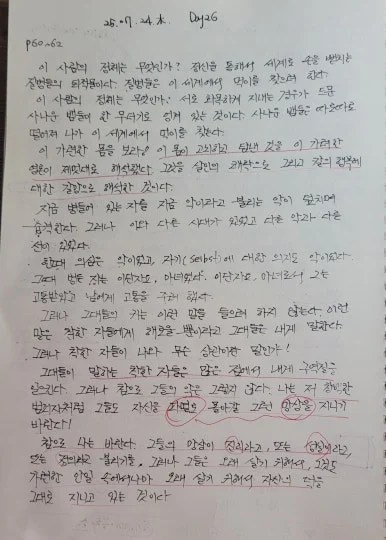 25. 07. 24. 木. Day26
p60~62
이 사람의 정체는 무엇인가? 정신을 통해서 세계로 손을 뻗치는
질병들의 퇴적물이다. 질병들은 이 세계에서 먹이를 찾으려 한다.
이 사람의 정체는 무엇인가? 서로 화목하게 지내는 경우가 드문
사나운 뱀들이 한 무더기로 엉켜 있는 것이다. 사나운 뱀들은 따로따로
떨어져 나가 이 세계에서 먹이를 찾는다.
이 가련한 몸을 보라! 이 몸이 고뇌하고 탐낸 것을 이 가련한
영혼이 제멋대로 해석했다. 그것을 살인의 쾌락으로 그리고 칼의 행복에
대한 갈망으로 해석한 것이다.
지금 병들어 있는 자를 지금 악이라고 불리는 악이 덮치며
습격한다. 그러나 이와 다른 시대가 있었고 다른 악과 다른
선이 있었다.
한때 의심은 악이었고, 자기(Selbst)에 대한 의지도 악이었다.
그때 병든 자는 이단자요, 마녀였다. 이단자요, 마녀로서 그는
고통받았고 남에게 고통을 주려 했다.
그러나 그대들의 귀는 이런 말을 들으려 하지 않는다. 이런
말은 착한 자들에게 해로울 뿐이라고 그대들은 내게 말한다.
그러나 착한 자들이 나와 무슨 상관이란 말인가!
그대들이 말하는 착한 자들은 많은 점에서 내게 구역질을
일으킨다. 그러나 참으로 그들의 악은 그렇지 않다. 나는 저 창백한
범죄자처럼 그들도 자신을 파멸로 몰아갈 그런 망상을 지니기
바란다!
참으로 나는 바란다. 그들의 망상이 진리라고, 또는 성실이라고,
또는 정의라고 불리기를. 그러나 그들은 오래 살기 위해서, 그것도
가련한 안일 속에서나마 오래 살기 위해서 자신의 덕을
그대로 지니고 있는 것이다